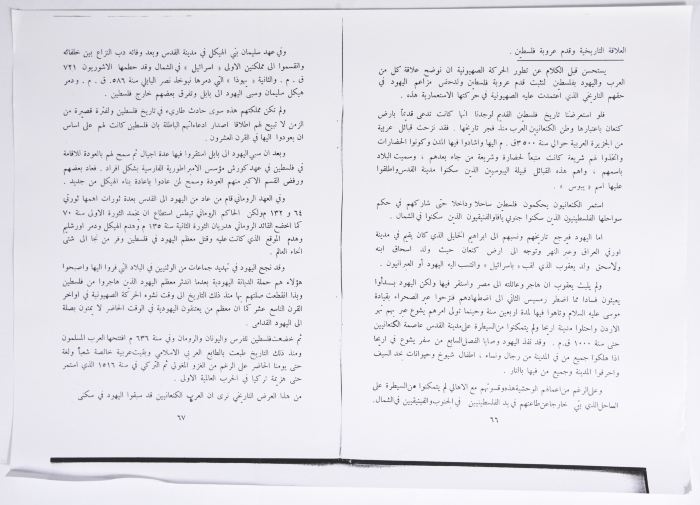 العلاقة التاريخية وقدم عروبة فلسطين .
يستحسن قبل الكلام عن تطور الحركة الصهيونية ان نوضح علاقة كل من
العرب واليهود بفلسطين لنثبت قدم عروبة فلسطين ولندحض مزاعم اليهود في
حقهم التاريخي الذي اعتمدت عليه الصهيونية في حركتها الاستعمارية هذه .
فلو استعرضنا تاريخ فلسطين القديم لوجدنا انها كانت تدعى قدماً بارض
كنعان باعتبارها وطن الكنعانيين العرب منذ فجر تاريخها . فقد نزحت قبائل عربية
من الجزيرة العربية حوالي سنة ٣٥٠٠ ق . م اليها واشادوا فيها المدن وكونوا الحضارات
واتخذوا لهم شريعة كانت منبعاً لحضارة وشريعة من جاء بعدهم ، وسميت البلاد
باسمهم ، واهم هذه القبائل قبيلة اليبوسيين الذين سكنوا مدينة القدس واطلقوا
عليها اسم « يبوس » .
استمر الكنعانيون يحكمون فلسطين ساحلا وداخلا حتى شاركهم في حكم
سواحلها الفلسطينيين الذين سكنوا جنوبي يافا والفينيقيون الذين سكنوا في الشمال .
اما اليهود فيرجع تاريخهم ونسبهم الى ابراهيم الخليل الذي كان يقيم في مدينة
اور في العراق وعبر النهر وتوجه الى ارض كنعان حيث ولد اسحاق ابنه
ولاسحق ولد يعقوب الذي لقب « باسرائيل » وانتسب اليه اليهود أو العبرانيون .
ولم يلبث يعقوب ان هاجر وعائلته الى مصر واستقر فيها ولكن اليهود بسدأوا
يعيثون فسادا مما اضطر رمسيس الثاني الى اضطهادهم فنزحوا عبر الصحراء بقيادة
موسى عليه السلام وتاهوا فيها لمدة اربعين سنة وحينما تولى امرهم يشوع عبر بهم نهر
الاردن واحتلوا مدينة اريحا ولم يتمكنوا من السيطرة على مدينة القدس عاصمة الكنعانيين
حتى سنة ١٠٠٠ ق . م . وقد نفذ اليهود وصايا الفصل السابع من سفر يشوع في اريحا
اذا هلكوا جميع من في المدينة من رجال ونساء ، اطفال شيوخ وحيوانات بحد السيف
واحرقوا المدينة وجميع من فيها بالنار .
وعلى الرغم من اعمالهم الوحشية هذه وقسوتهم مع الاهالي لم يتمكنوا من السيطرة على
الساحل الذي بقي خارجا عن طاعتهم في يد الفلسطينيين في الجنوب والفينيقيين في الشمال .
٦٦
وفي عهد سليمان بنى الهيكل في مدينة القدس وبعد وفاته دب النزاع بين خلفائه
وانقسموا الى مملكتين الاولى « اسرائيل » في الشمال وقد حطمها الاشوريون ٧٢١
ق . م . والثانية « يهوذا » التي دمرها نبوخذ نصر البابلي سنة ٥٨٦ . ق . م . ودمر
هيكل سليمان وسبى اليهود الى بابل وتفرق بعضهم خارج فلسطين .
ولم تكن مملكتهم هذه سوى حادث طاريء في تاريخ فلسطين ولفترة قصيرة من
الزمن لا تبيح لهم اطلاقا اصدار ادعاءاتهم الباطلة بان فلسطين كانت لهم على اساس
ان يعودوا اليها في القرن العشرون .
وبعد ان سبي اليهود الى بابل استقروا فيها عدة اجيال ثم سمح لهم بالعودة للاقامة
في فلسطين في عهد كورش مؤسس الامبراطورية الفارسية بشكل افراد . فعاد بعضهم
ورفض القسم الاكبر منهم العودة وسمح لمن عادوا باعادة بناء الهيكل من جديد .
وفي العهد الروماني قام من عاد من اليهود الى القدس بعدة ثورات اهمها ثورتي
٦٤ و ١٣٢ م ولكن الحاكم الروماني تيطس استطاع ان يخمد الثورة الاولى سنة ٧٠
كما اخضع القائد الروماني هدريان الثورة الثانية سنة ١٣٥ م وهدم الهيكل ودمر اورشليم
وهدم الموقع الذي كانت عليه وقتل معظم اليهود في فلسطين وفر من نجا الى شتى
انحاء العالم .
وقد نجح اليهود في تهويد جماعات من الوثنيين في البلاد التي فروا اليها واصبحوا
هؤلاء هم حملة الديانة اليهودية بعدما اندثر معظم اليهود الذين هاجروا من فلسطين
وبدا انقطعت صلتهم بها منذ ذلك التاريخ الى وقت نشوء الحركة الصهيونية في اواخر
القرن التاسع عشر كما أن معظم من يعتنقون اليهودية في الوقت الحاضر لا يمتون بصلة
الى اليهود القدامى .
ثم خضعت فلسطين للفرس واليونان والرومان وفي سنة ٦٣٦ م افتتحها العرب المسلمون
ومنذ ذلك التاريخ طبعت بالطابع العربي الاسلامي وبقيت عربية خالصة شعباً ولغة
حتى يومنا الحاضر على الرغم من الغزو المغولي ثم التركي في سنة ١٥١٦ الذي استمر
حتى هزيمة تركيا في الحرب العالمية الاولى .
من هذا العرض التاريخي نرى ان العرب الكنعانيين قد سبقوا اليهود في سكنى
٦٧